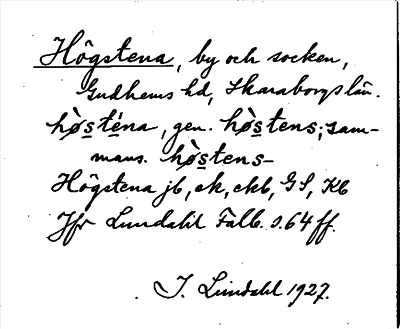 Högstena, by och socken,
Gudhems hd, Skaraborgs län.
hø̀sténa, gen. hø̀stens; sam-
mans. hø̀stens-
Högstena jb, ek, ekb, GS, Kb
Jfr Lundahl Falb. s. 64 ff.
I. Lundahl 1927.